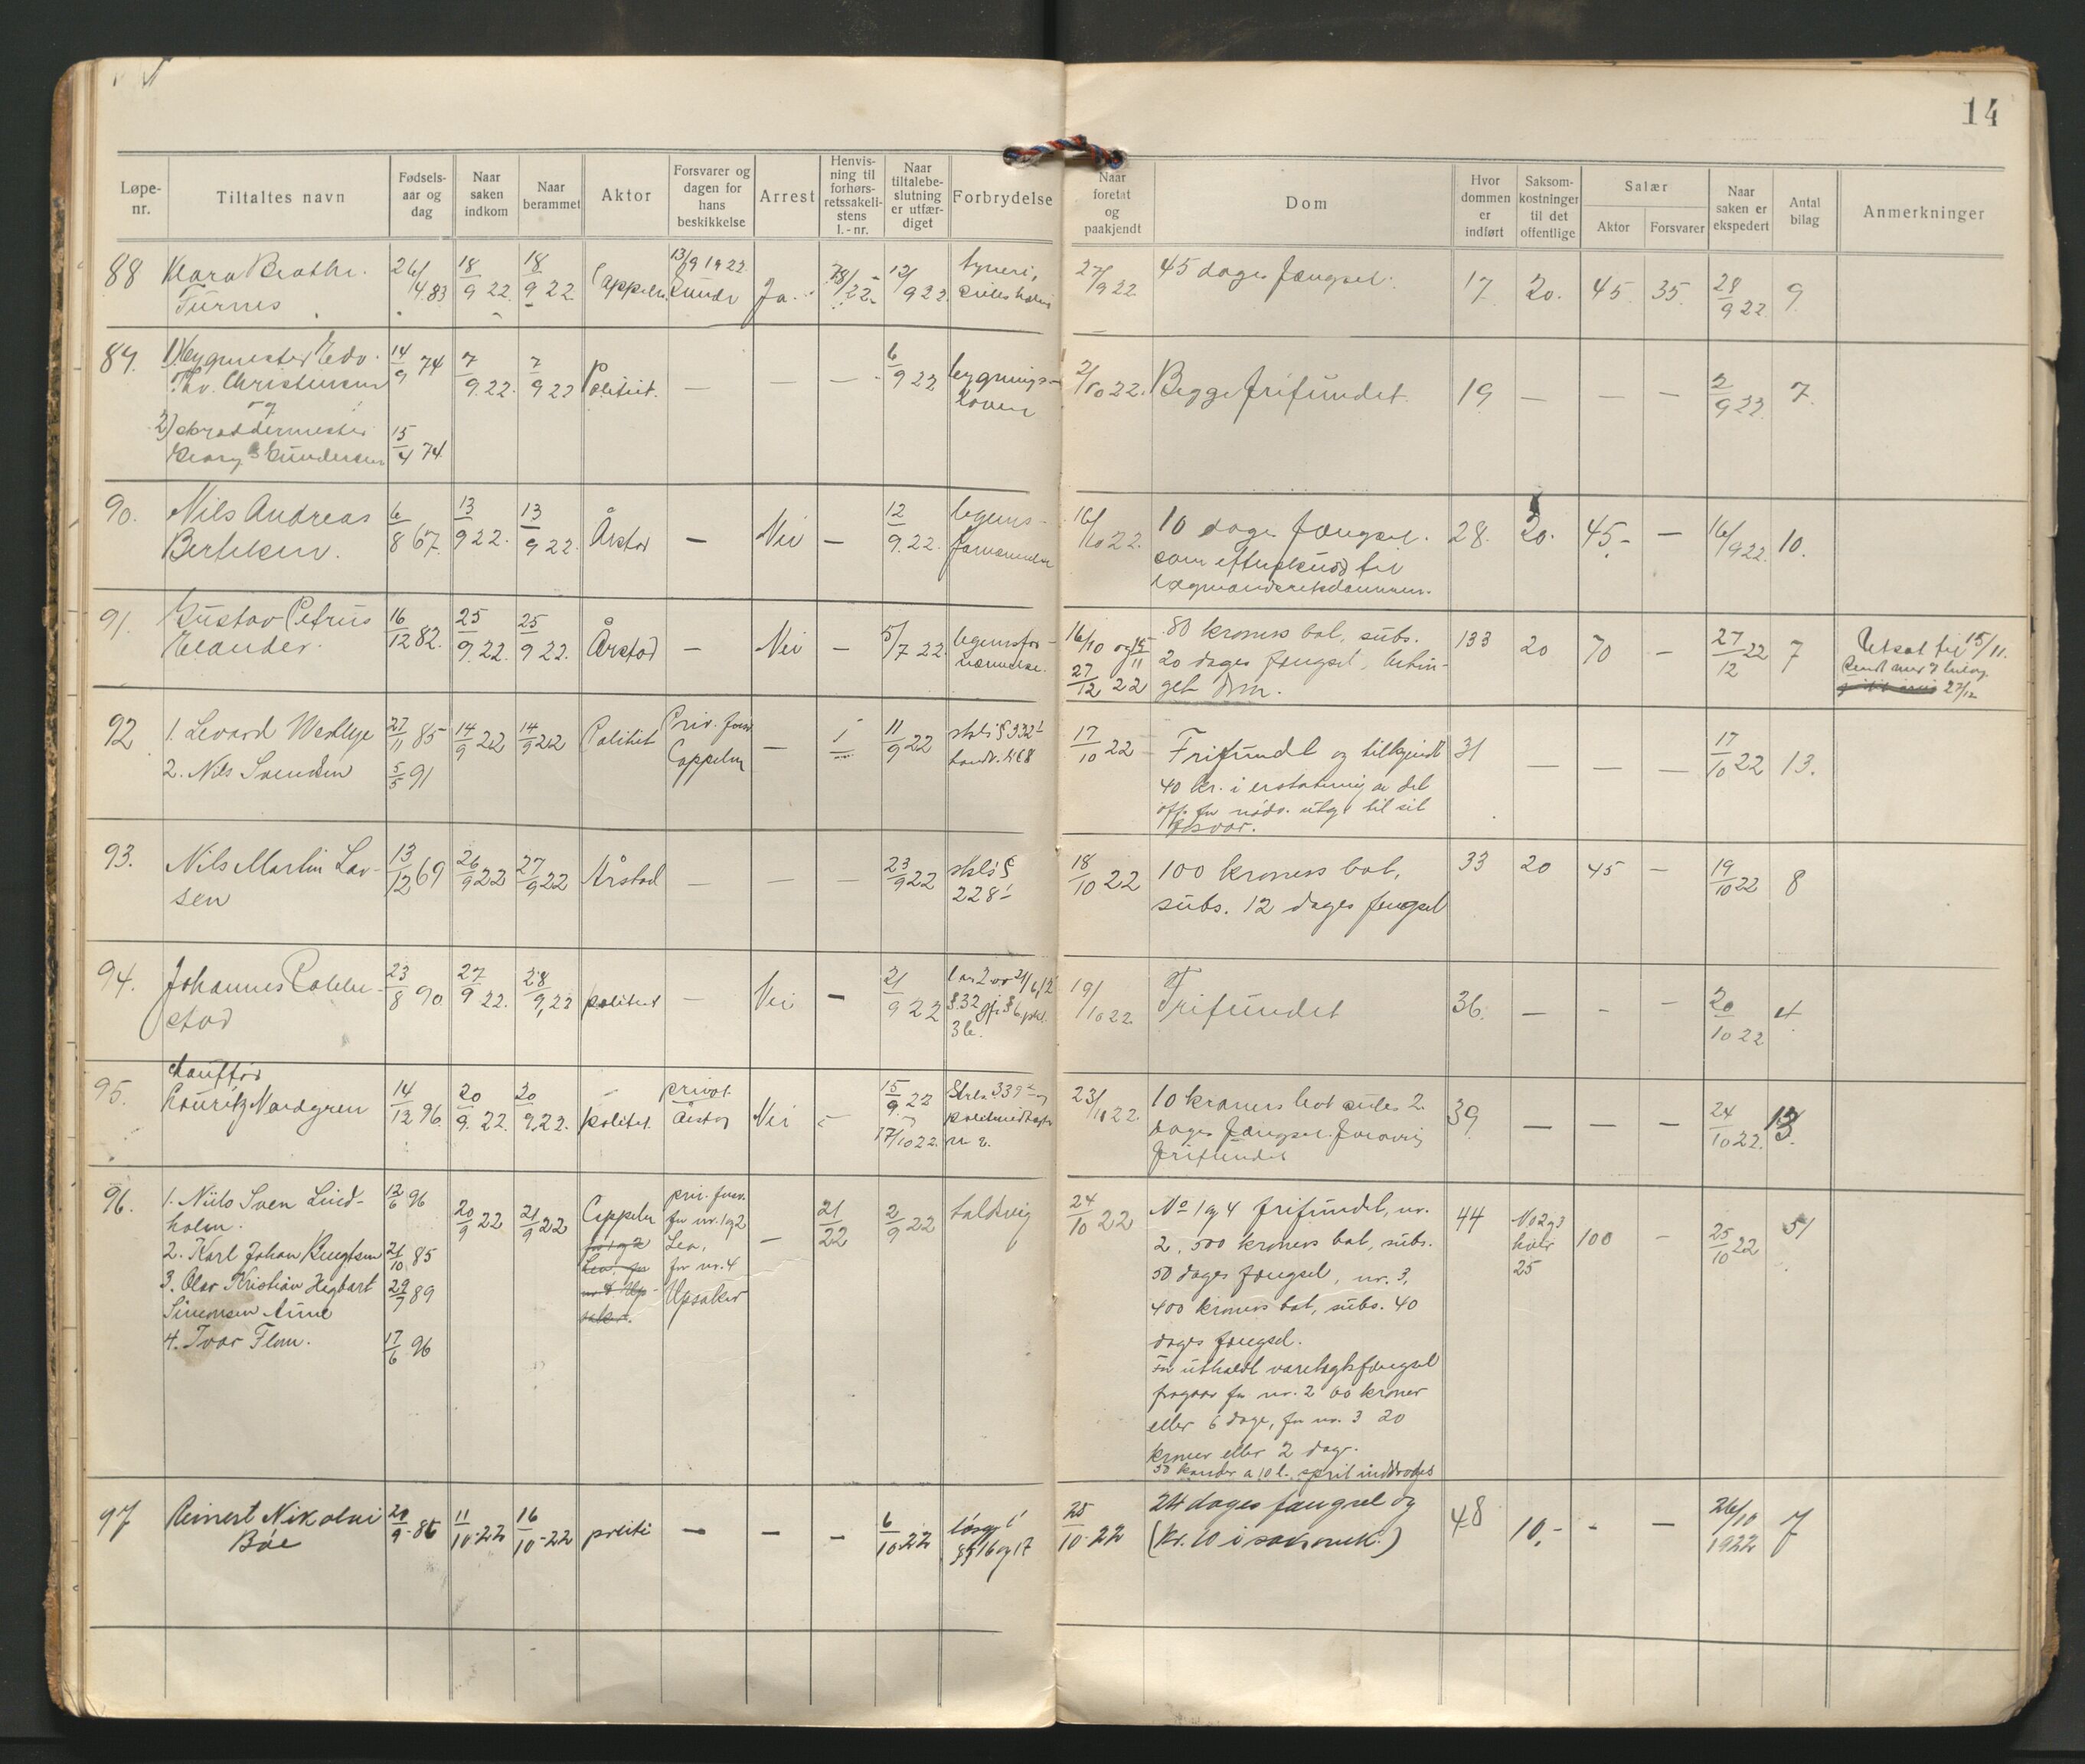 14
Løpe-
nr.
Tiltaltes navn
Fødsels-
aar og
dag
Naar
saken
indkom
Naar
berammet
Aktor
Forsvarer og
dagen for
hans
beskikkelse
Arrest
Henvis-
ning til
forhørs-
retssakeli-
stens
l.-nr.
Naar
tiltalebe-
slutning
er utfær-
diget
Forbrydelse
Naar
foretat
og
paakjendt
Dom
Hvor
dommen
er
indført
Saksom-
kostninger
til det
offentlige
Salær
Aktor
Forsvarer
Naar
saken er
ekspedert
Antal
bilag
Anmerkninger
88
Klara
Turnes
26/4.83
18/9 22.
18/9 22
Cappelen
13/9 1922.
Lunde
Ja.
78/22.
12/9 22.
tyveri,
27/9 22
45 dages fængsel.
17
20.
45.
35.
28/9 22
9.
89.
1) Bygmester Edv.
Chr. Christensen
og
2) Skræddermester
Georg Gundersen
14/9 74
15/4 74
7/9.22.
7/9 22
Politiet.
— — —
6/9 22
bygnings-
loven
2/10 22.
Begge frifundet.
19
— — —
2/9 22.
7.
90.
Nils Andreas
Bertelsen.
6/8 67.
13/9 22.
13/9 22.
Årstad
—
Nei
—
12/9.22.
legems-
fornærmelse
16/10 22.
10 dages fængsel.
som efterskud til
lægmandsretsdommen.
28.
20.
45.-
—
16/9 22.
10.
91.
Gustav Petrus
Elander.
16/12 82.
25/9.22.
25/9 22.
Årstad
—
Nei
—
5/7 22.
legemsfor-
nærmelse.
16/10 og 15/11
27/12 22
80 kroners bot, subs.
20 dages fængsel, betin-
get dom.
133
20
70
—
27/12 22
7
Utsat til 15/11.
Sendt med 7 bilag
27/12
92
1. Sevard Westlye
2. Nils Svendsen
27/11 85
5/5 91
14/9 22
14/9 22
Politiet
Priv. forsv.
Cappelen
—
11/9 22
strls § 332¹
17/10 22
Frifundet og tilkjendt
40 kr. i erstatning av det
off. for nødv. utg. til sit
forsvar.
31
— — —
17/10 22
13.
93.
Nils Martin Lar-
sen
13/12 69
26/9 22
27/9 22
Årstad
— — —
23/9 22
strls §
228¹
18/10 22
100 kroners bot,
subs. 12 dages fengsel
33
20
45
—
19/10 22
8
94.
Johannes
stad
23/8 90
27/9 22.
28/9, 22
politiet
—
Nei
—
21/9 22
§ 32 jfr § 6, pkt.
3 b.
19/10 22.
Frifundet
36.
— - —
20/10 22
4
95.
Chauffør
Lauritz Nordgren
14/12 96.
20/9. 22.
20/9, 22.
politiet.
privat.
Årstad
Nei
—
15/9. 22
17/10 22.
Strls. 339² og
23/10 22.
10 kroners bot subs 2
dages fængsel. forøvrig
frifundet
39
— — —
24/10 22.
13.
96.
1. Niils Sven Lind-
holm.
2. Karl Johan Bengtsen
3. Olav Kristian Hegbart
Simonsen Aune
4. Ivar Flem.
12/6 96
21/10 85
29/7 89
17/6 96
20/9 22
21/9 22
Cappelen
priv. forsv.
for nr. 1 og 2
Lea,
for nr. 4
Upsaker
—
21/22
2/9 22
toldsvig
24/10 22
No 1 og 4 frifundet, nr.
2, 500 kroners bot, subs.
50 dages fængsel, nr. 3,
400 kroners bot, subs. 40
dages fængsel.
For utholdt varetægtsfængsel
fragaar for nr. 2 60 kroner
eller 6 dage, for nr. 3 20
kroner eller 2 dage.
50 kander a 10 l. sprit inddrages
44
No 2 og 3
hver
25
100
—
25/10 22
51
97
Reinert Nikolai
Bøe
20/9-86
11/10-22
16/10-22
politi
— — —
6/10 22
løsgl
§§ 16 og 17
25/10-22
24 dages fængsel og
(kr. 10 i saksomk.)
48
10,-
-
—
26/10
1922
7